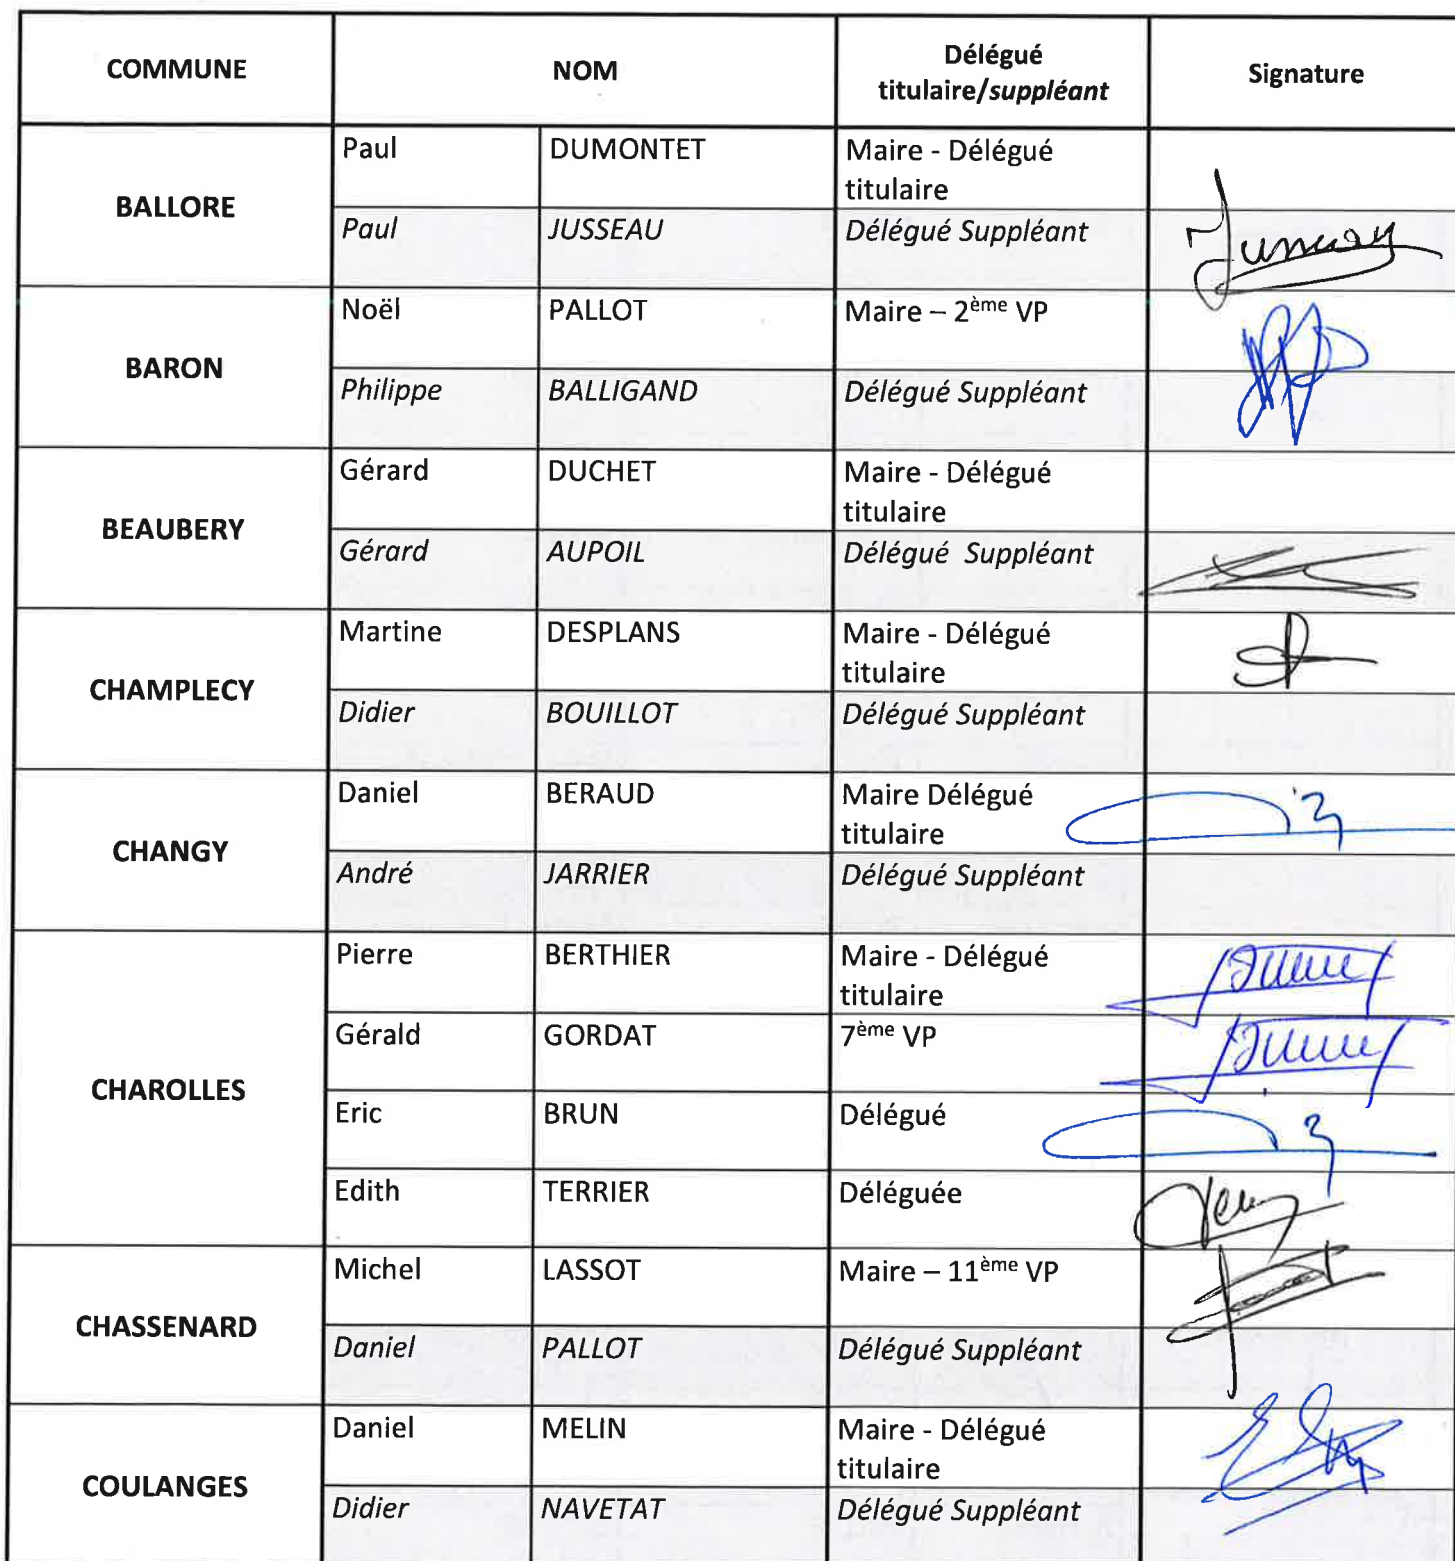 COMMUNE NOM Délégué titulaire/suppléant Signature
BALLORE Paul DUMONTET Maire - Délégué titulaire
Paul JUSSEAU Délégué Suppléant
BARON Noël PALLOT Maire – 2ème VP
Philippe BALLIGAND Délégué Suppléant
BEAUBERY Gérard DUCHET Maire - Délégué titulaire
Gérard AUPOIL Délégué Suppléant
CHAMPLECY Martine DESPLANS Maire - Délégué titulaire
Didier BOUILLOT Délégué Suppléant
CHANGY Daniel BERAUD Maire Délégué titulaire
André JARRIER Délégué Suppléant
CHAROLLES Pierre BERTHIER Maire - Délégué titulaire
Gérald GORDAT 7ème VP
Eric BRUN Délégué
Edith TERRIER Déléguée
CHASSENARD Michel LASSOT Maire – 11ème VP
Daniel PALLOT Délégué Suppléant
COULANGES Daniel MELIN Maire - Délégué titulaire
Didier NAVETAT Délégué Suppléant